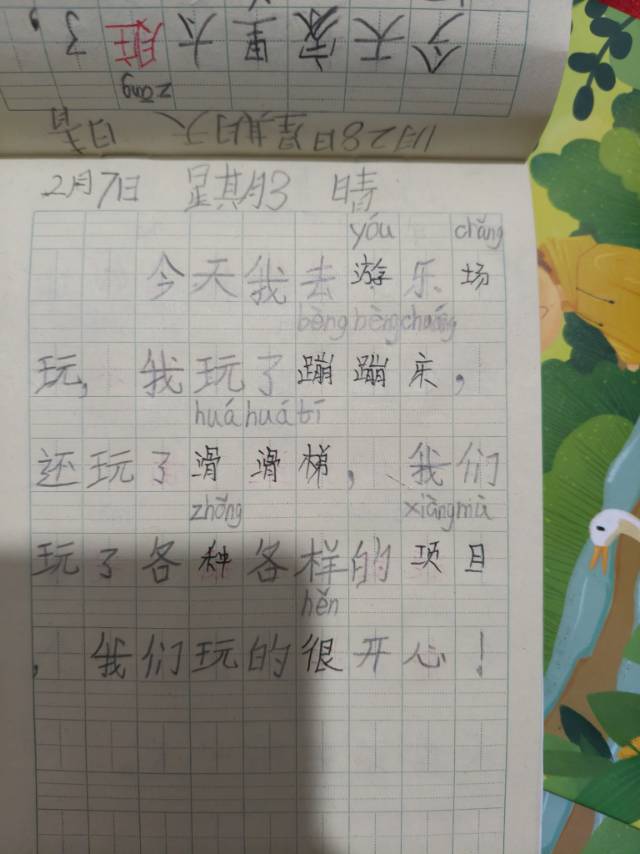 今天家里太脏了，
zāng
11月28日星期天 晴
2月7日 星期3 晴
yóu chǎng
今天我去游乐场
bèng bèng chuáng
玩，我玩了蹦蹦床，
huá huá tī
还玩了滑滑梯，我们
zhǒng xiàng mù
玩了各种各样的项目
hěn
，我们玩的很开心！